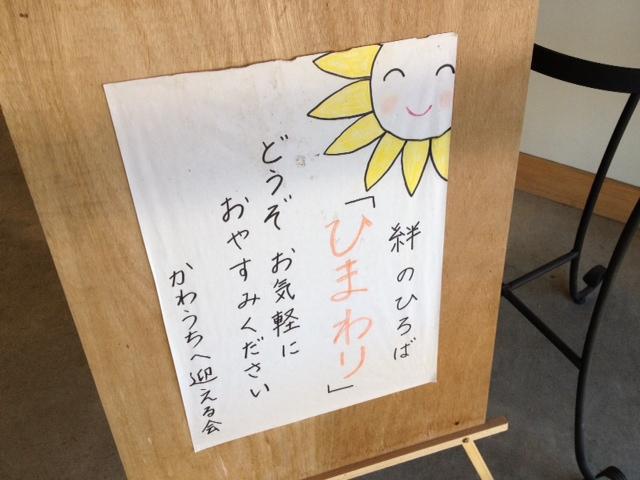 絆のひろば
「ひまわり」
どうぞ お気軽に
おやすみください
かわうちへ迎える会